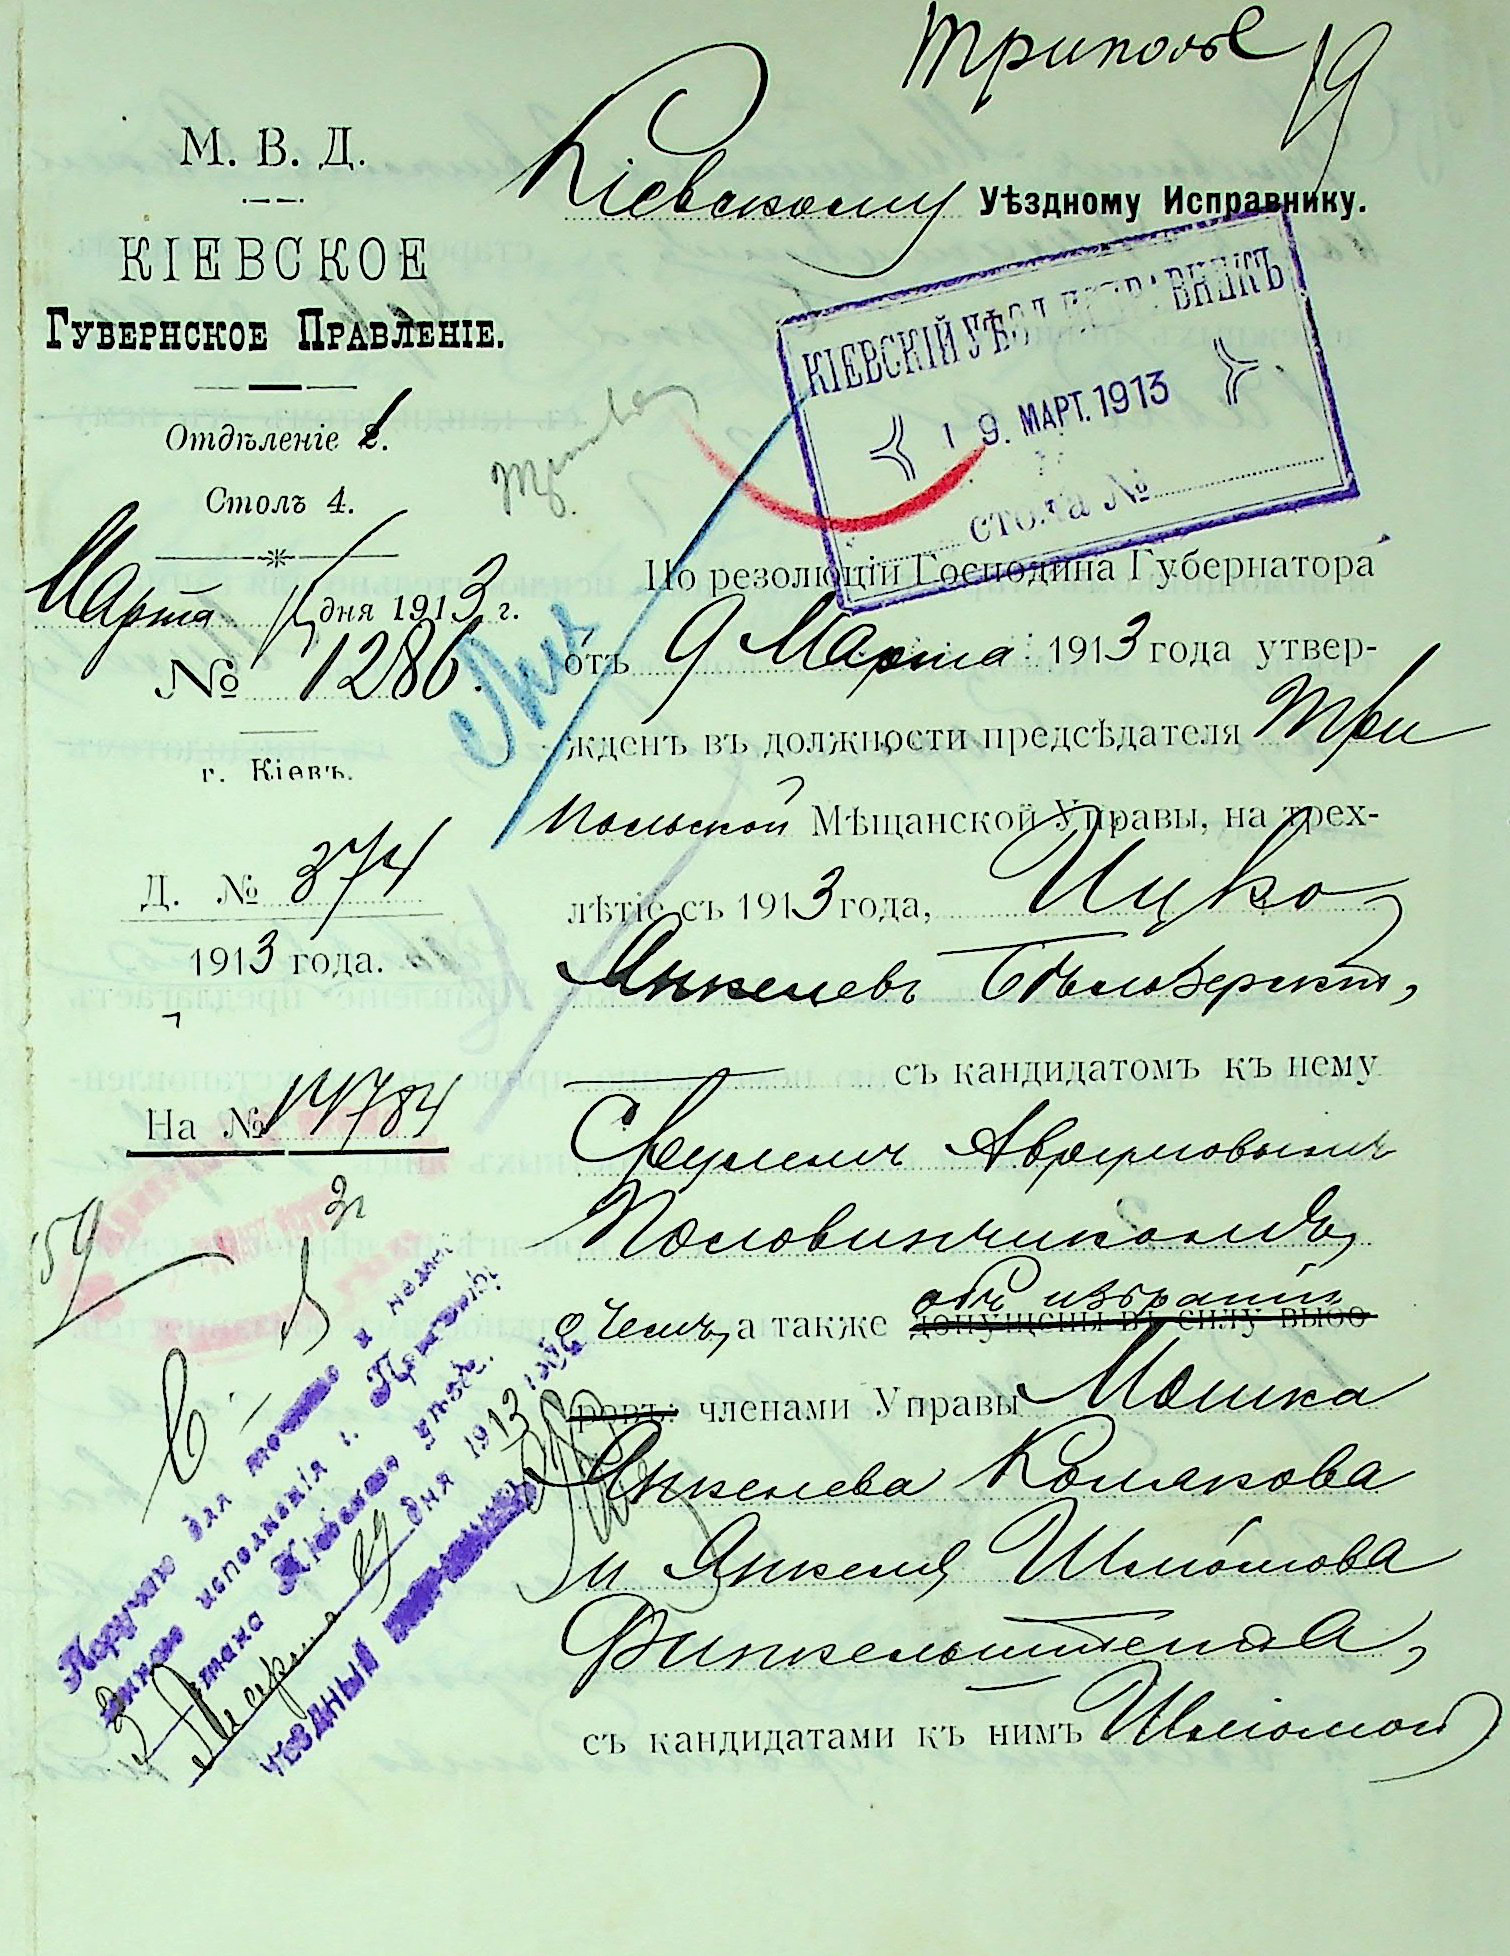 Триполье
19
М. В. Д.
КІЕВСКОЕ
Губернское Правленіе.
Отдѣленіе 1.
Столъ 4.
Марта дня 1913 г.
№ 1286.
г. Кіевъ.
Д. № 374
1913 года.
На № 14784
159
Кіевскому Уѣздному Исправнику.
КІЕВСКІЙ УѢЗД. ИСПРАВНИКЪ
19. МАРТ. 1913
стола №
По резолюціи Господина Губернатора
отъ 9 Марта 1913 года утвер-
жденъ въ должности предсѣдателя Три
польской Мѣщанской Управы, на трех-
лѣтіе съ 1913 года, Ицко
Янкелевъ Бѣлозерскій,
съ кандидатомъ къ нему
Срулемъ Аврумовымъ
Половинчикомъ,
о чемъ, а также объ избраніи
допущены въ силу выбо
ровъ: членами Управы Мошка
Янкелева Колякова
и Янкеля Шліомова
Финкельштейна,
съ кандидатами къ нимъ Шліомой
Поручаю для
исполненія г. Приставу
стана Кіевскаго уѣзда.
Марта 19 дня 1913 года
УѢЗДНЫЙ